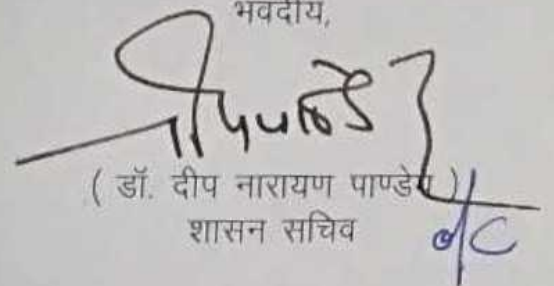 भवदीय,
( डॉ. दीप नारायण पाण्डेय )
शासन सचिव